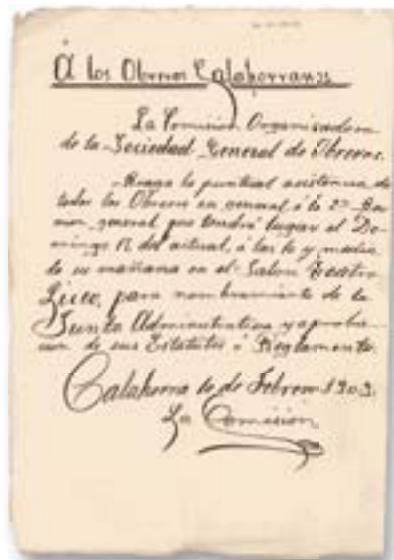 Á los Obreros Calahorranos
La Comisión Organizadora
de la Sociedad General de Obreros.
Ruega la puntual asistencia de
todos los Obreros en general á la 2ª Reu-
nion general, que tendrá lugar el Do-
mingo del actual, á las 10 y media
de su mañana en el Salon Teatro
Liceo, para nombramiento de la
Junta Administrativa y aproba-
cion de sus Estatutos ó Reglamento.
Calahorra 10 de Febrero 1903.
La Comisión